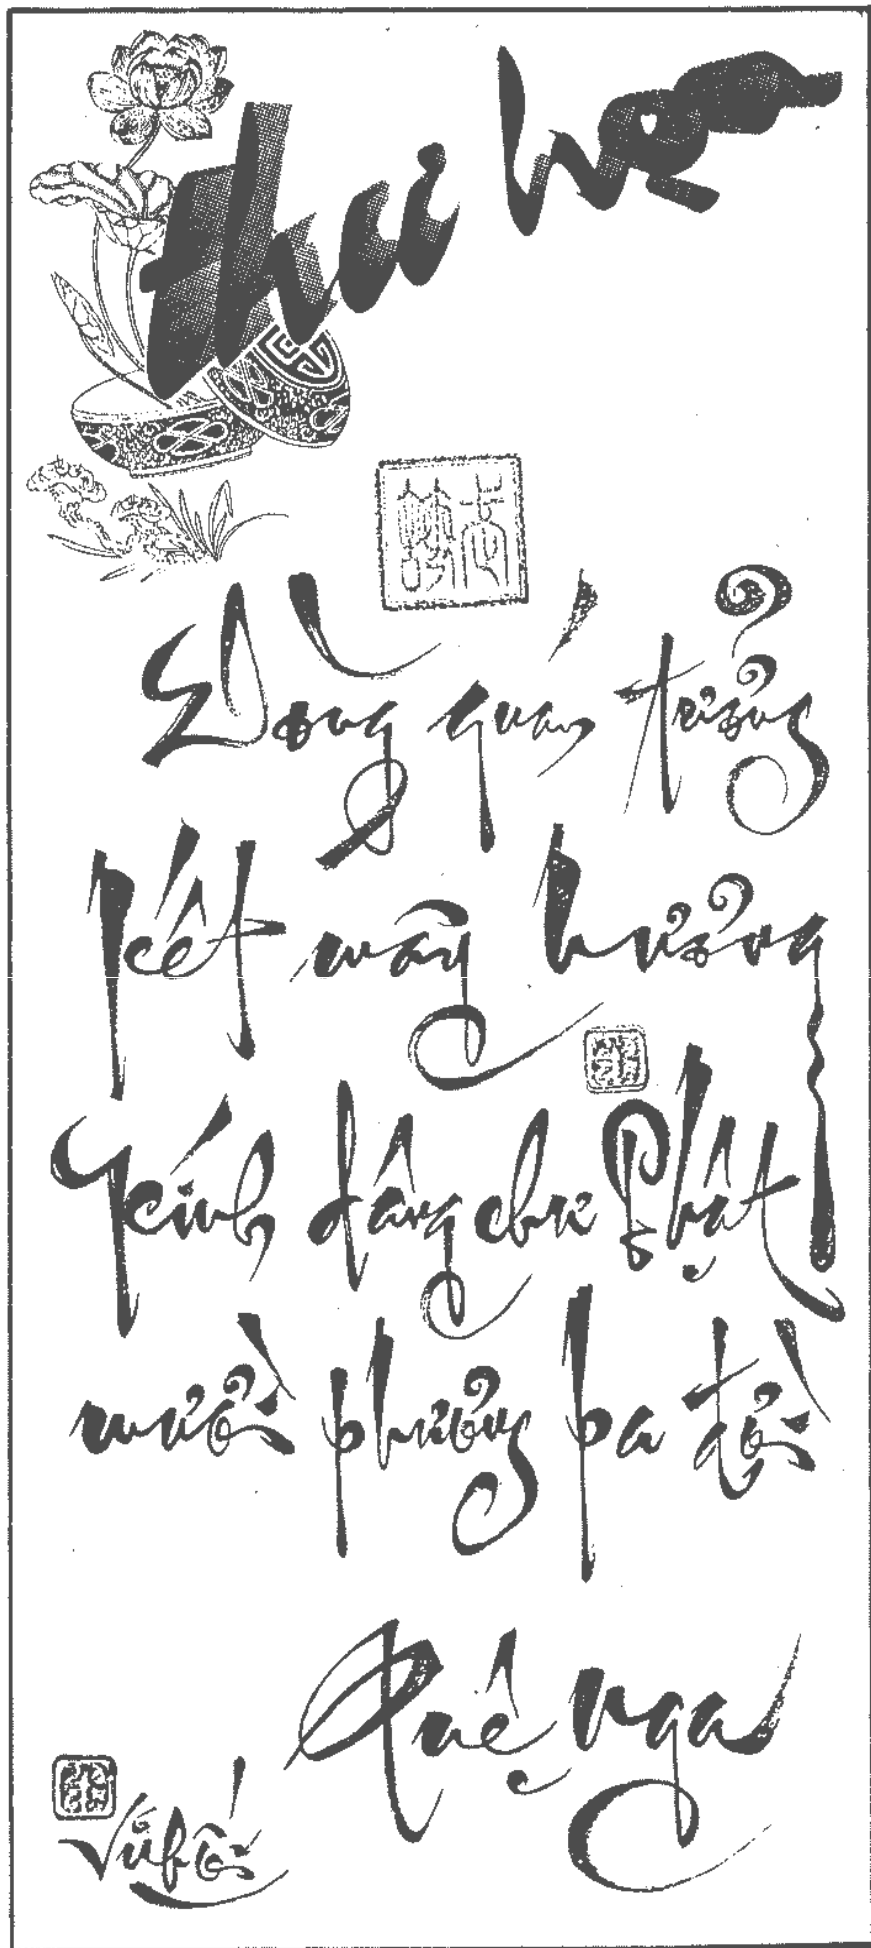 thư họa
Dòng quán tưởng
kết mây hương
Kính dâng chư Phật
mười phương ba đời
Tuệ Nga
Vũ Hối